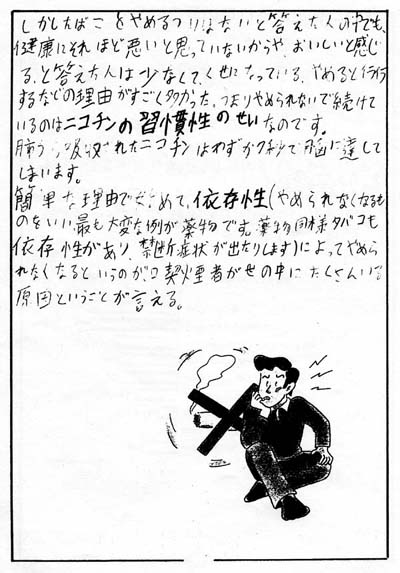 しかしたばこをやめるつりはないと答えた人の中でも、
健康にそれほど悪いと思っていないからや、おいしいと感じ
る、と答えた人は少なくて、くせになっている、やめると行行
するなどの理由がすごく多かった、つまりやめられないで続けて
いるのはニコチンの習慣性のせいなのです。
肺から吸収されたニコチンはわずか7秒で脳に達して
しまいます。
簡単な理由で始めて、依存性(やめられなくなるも
のをいい、最も大変な例が薬物です。薬物同様タバコも
依存性があり、禁断症状が出たりします)によってやめら
れたくなるというのが、喫煙者が世の中にたくさんいる
原因ということが言える。